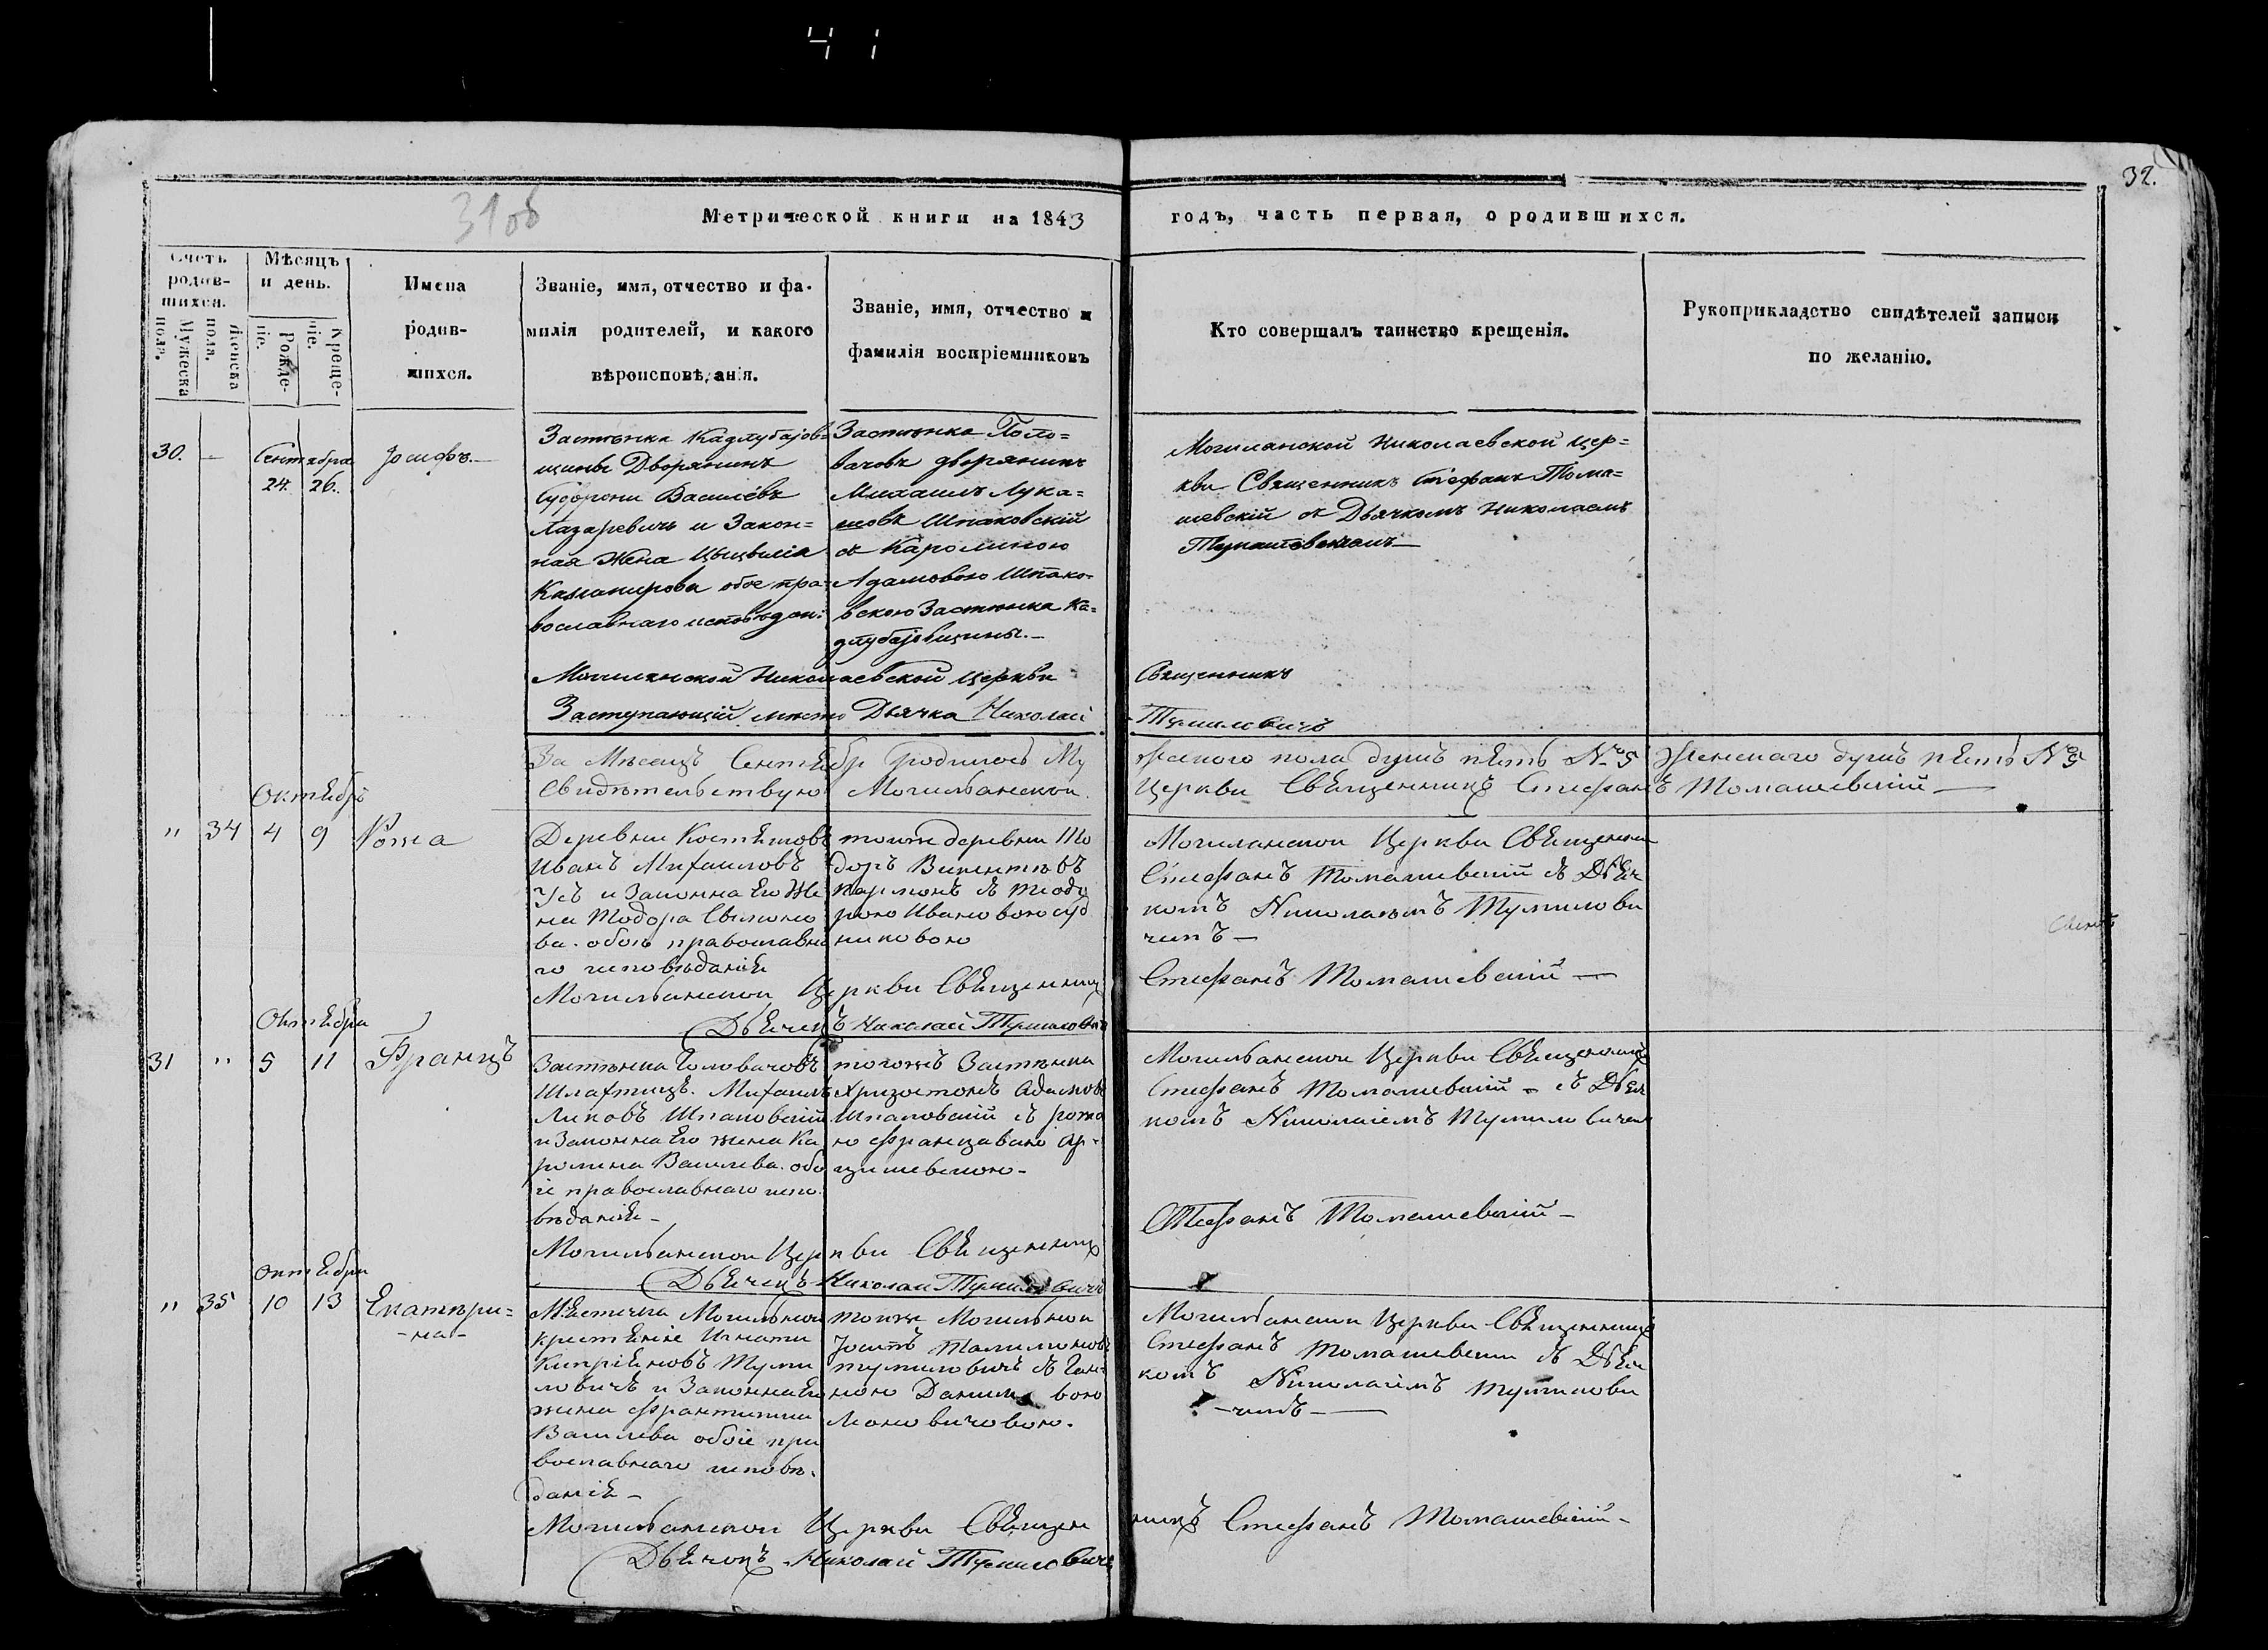 41
32.
31об
Метрической книги на 1843 годъ, часть первая, о родившихся.
Счетъ родив-
шихся.
Мужеска пола.
Женска пола.
Мѣсяцъ
и день.
Рожде-
ніе.
Креще-
ніе.
Имена
родив-
шихся.
Званіе, имя, отчество и фа-
милія родителей, и какого
вѣроисповѣданія.
Званіе, имя, отчество и
фамилія воспріемниковъ
Кто совершалъ таинство крещенія.
Рукоприкладство свидѣтелей записи
по желанію.
30. —
Сентября
24. 26.
Іосифъ.—
Застѣнка Кадлубајов-
щины Дворянинъ
Василёвъ
Лазаревичъ и Закон=
ная Жена Цыцылія
Казимирова обое пра-
вославнаго исповѣдан:
Застѣнка Голо=
вачовъ дворянинъ
Михаилъ Лука=
шовъ Шпаковскій
съ Каролиною
Адамовою Шпако-
вскою Застѣнка Ка=
длубајовщины.—
Могилянской Николаевской цер=
кви Священникъ Стефанъ Тома=
шевскій съ Дьячкомъ Николаемъ
Могилянской Николаевской Церкви Священникъ
Заступающій мѣсто Дьячка Николай Тумиловичъ
За Мѣсецъ Сентябр родилось Мужеского пола душъ пять № 5 Женскаго душъ пять № 5
Свидѣтельствую Могилянской Церкви Священникъ Стефанъ Томашевскій —
Октябръ
" 34 4 9 Рожа
Деревни Костяшовъ
Иванъ Михаиловъ
Усъ и Законна Его Же
на Тодора
ва. обое православна
го исповѣданія
тойже деревни То
доръ Викентѣвъ
съ Тодо
рою Ивановою
никовою
Могилянской Церкви Священни
Стефанъ Томашевскій съ Дьяч
комъ Николаемъ Тумилови
чемъ —
Могилянской Церкви Священникъ Стефанъ Томашевскій —
Дьячекъ Николай Тумилович
Октября
31 " 5 11 Францъ
Застѣнка Головачовъ
Шлахтицъ. Михаилъ
Луковъ Шпаковскій
и Законна Его жена Ка
ролина Василева. обо
іе православнаго испо
вѣданія —
тогожъ Застѣнка
Хризостомъ Адамовъ
Шпаковскій съ рожа
ю Францавою Ар-
цишевскою —
Могилянской Церкви Священникъ
Стефанъ Томашевскій — съ Дьяч
комъ Николаіемъ Тумиловичем
Могилянской Церкви Священникъ Стефанъ Томашевскій —
Дьячекъ Николай Тумиловичъ
Октября
" 35 10 13 Екатери=
-на-
Мѣстечка Могильной
крестьяне Игнати
Кипріяновъ Туми
ловичъ и Законна Его
жена Франтишка
Василева обоіе пра
вославнаго исповѣ-
данія —
тойже Могильной
Тумиловичъ съ Ган-
ною Даниловою
Моновичовою.
Могилянской Церкви Священникъ
Стефанъ Томашевски съ Дьяч
комъ Николаіемъ Тумилови
— чемъ —
Могилянской Церкви Священникъ Стефанъ Томашевскій —
Дьячокъ Николай Тумиловичъ